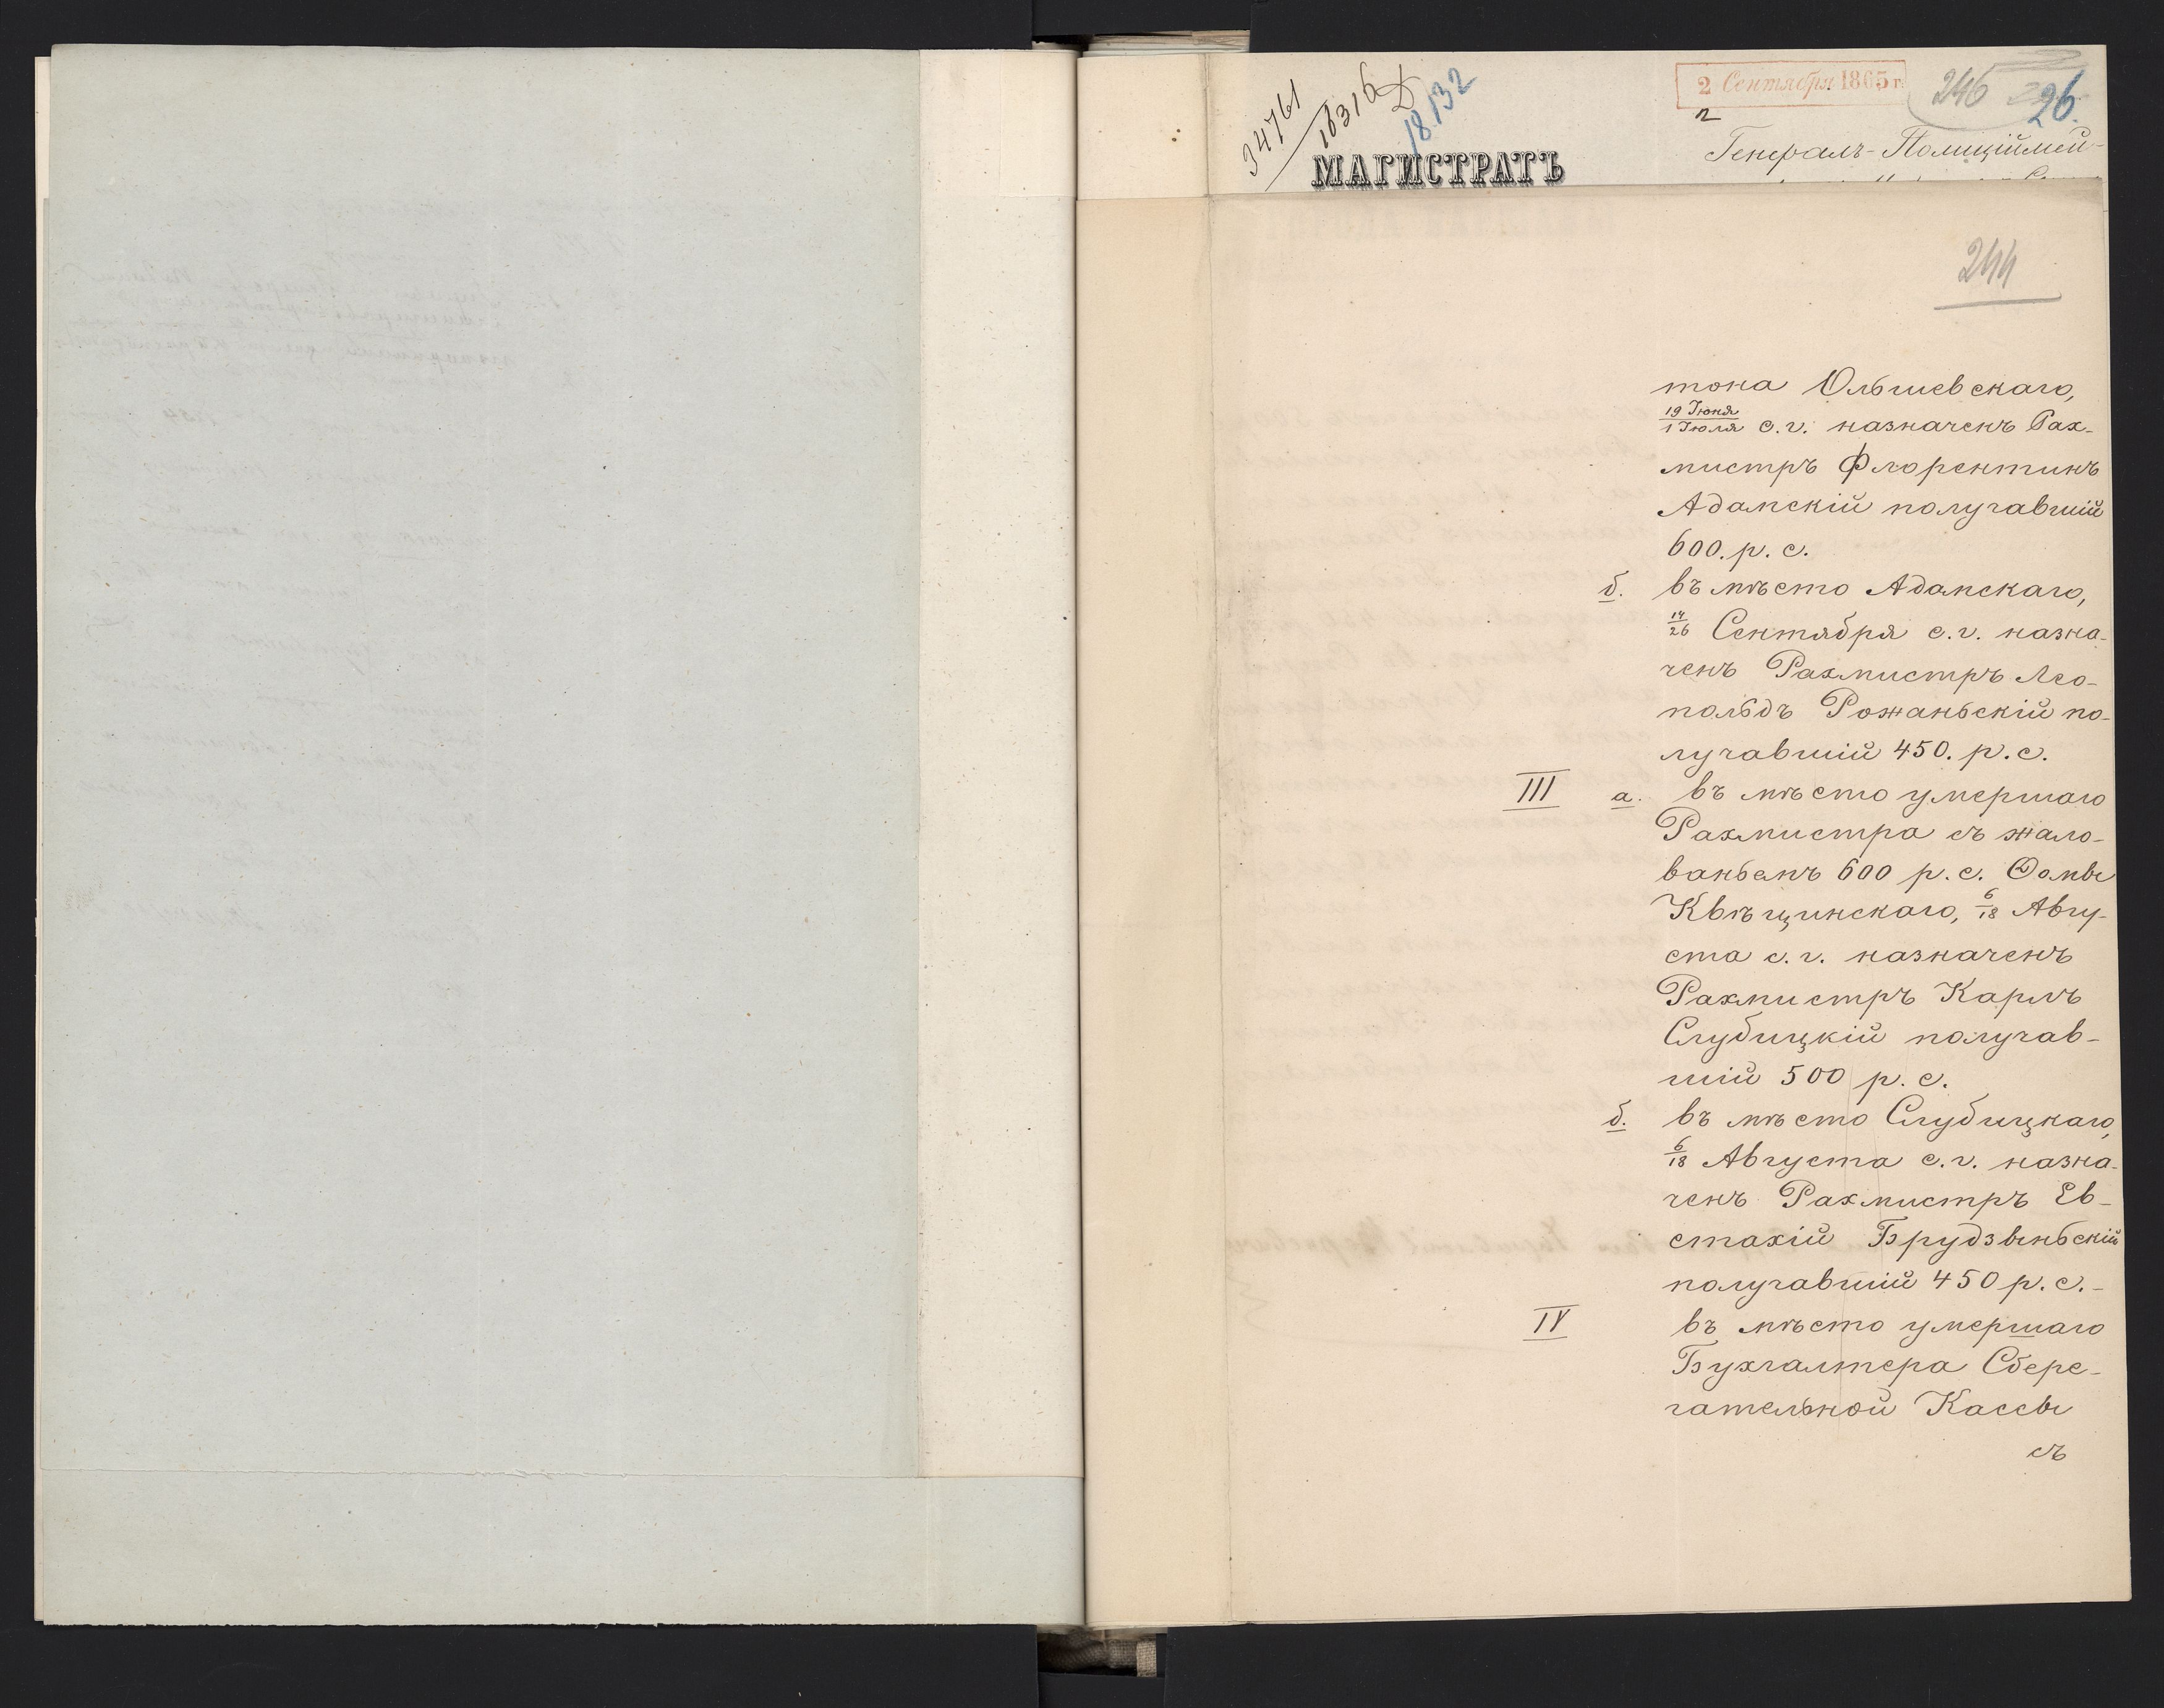 34761
18316
18132
2 Сентября 1865 г.
246
26.
МАГИСТРАТЪ
Генералъ-Полиціймей-
244
тона Ольшевскаго,
19 Іюня
1 Іюля с.г. назначенъ Рах-
мистръ Флорентинъ
Адамскій получавшій
600. р. с.
б. въ мѣсто Адамскаго,
14/26 Сентября с.г. назна-
ченъ Рахмистръ Лео-
польдъ Рожаньскій по-
лучавшій 450. р. с.
III а. въ мѣсто умершаго
Рахмистра съ жало-
ваньемъ 600 р. с. Ѳомы
Квѣцинскаго, 6/18 Авгу-
ста с. г. назначенъ
Рахмистръ Карлъ
Слубицкій получав-
шій 500 р. с.
б. въ мѣсто Слубицкаго,
6/18 Августа с. г. назна-
ченъ Рахмистръ Ев-
стахій Брудзыньскій
получавшій 450 р. с. -
IV въ мѣсто умершаго
Бухгалтера Сбере-
гательной Кассы
съ